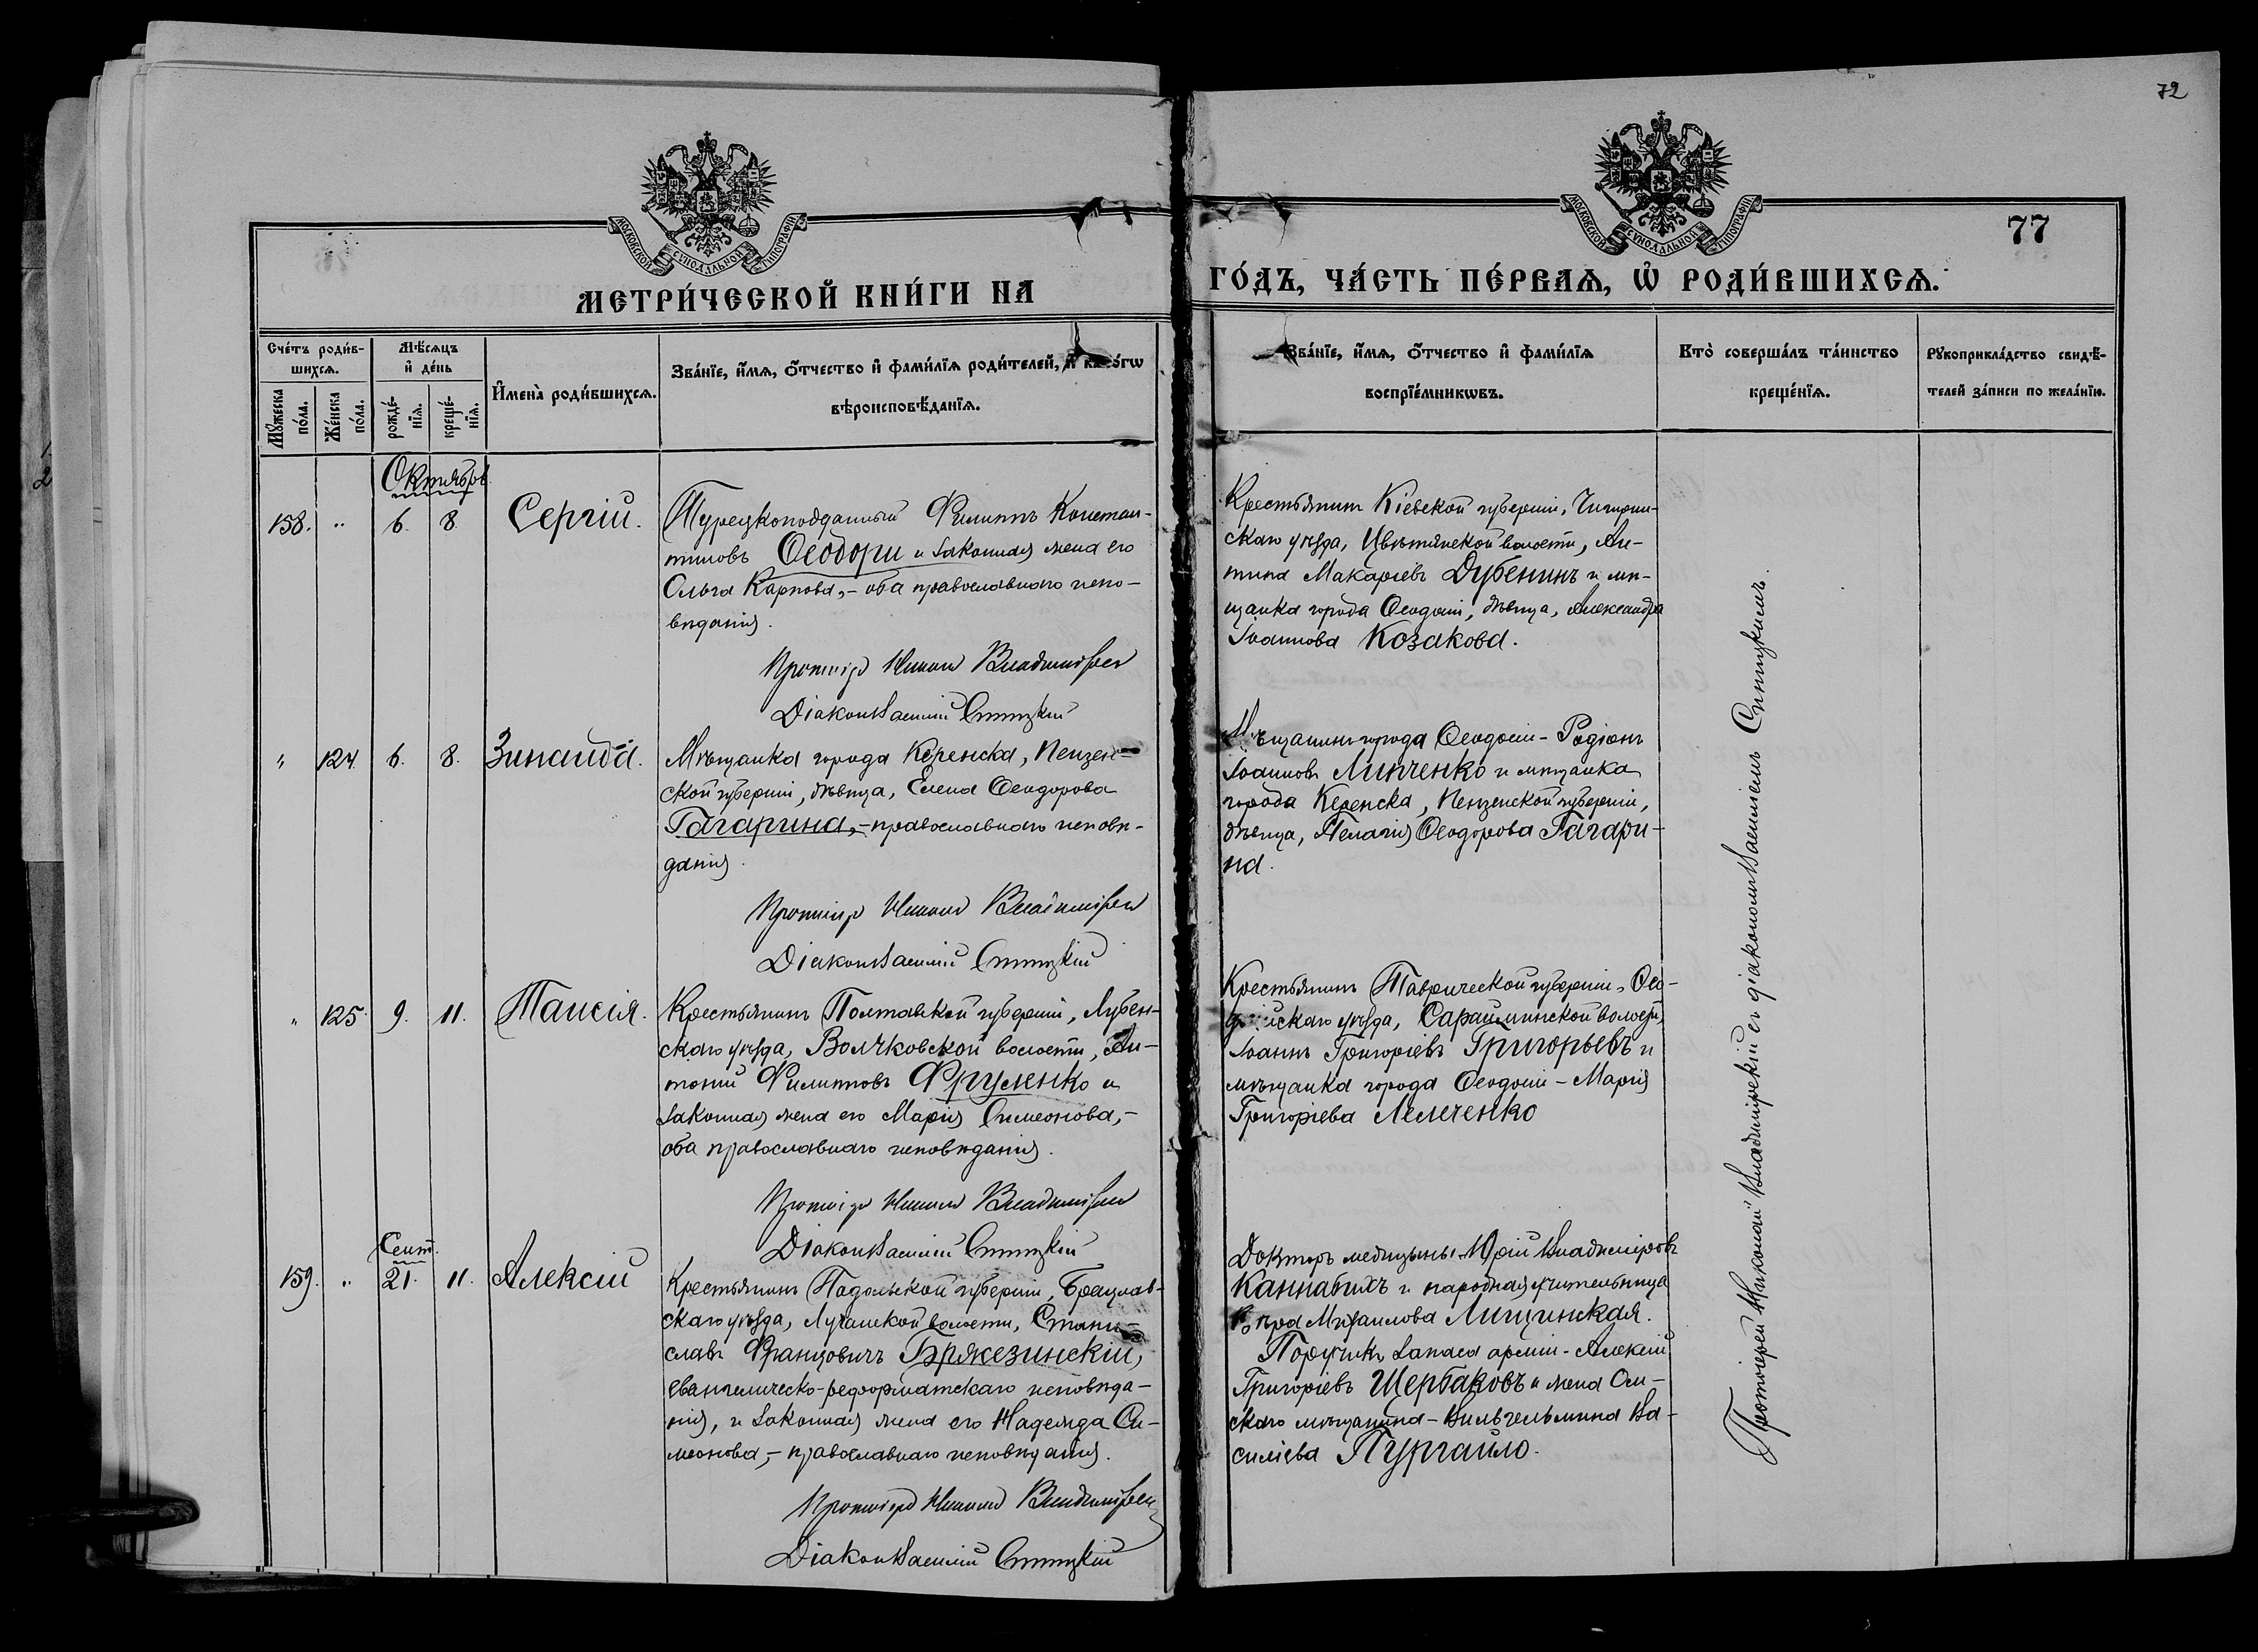 72
МОСКОВСКОЙ СУНОДАЛЬНОЙ ТИПОГРАФІИ
МОСКОВСКОЙ СУНОДАЛЬНОЙ ТИПОГРАФІИ
77
МЕТРИ́ЧЕСКОЙ КНИ́ГИ НА
ГО́ДЪ, ЧА́СТЬ ПЕ́РВАѦ, Ѡ҆ РОДИ́ВШИХСѦ.
Сче́тъ роди́в-
шихсѧ.
Мꙋ́жеска по́ла.
Же́нска по́ла.
Мѣ́сѧцъ
и҆ де́нь
рожде́-
нїѧ.
креще́-
нїѧ.
И҆мена̀ роди́вшихсѧ.
Зва́нїе, и҆́мѧ, ѻ҆́тчество и҆ фами́лїѧ роди́телей, и҆ како́гѡ
вѣроисповѣ́данїѧ.
Зва́нїе, и҆́мѧ, ѻ҆́тчество и҆ фами́лїѧ
воспрїе́мникѡвъ.
Кто̀ соверша́лъ та́инство
креще́нїѧ.
Рꙋкоприкла́дство свидѣ́-
телей за́писи по жела́нїю.
Октябрь.
158. " 6. 8. Сергій.
Турецкоподданный Филиппъ Констан-
тиновъ Ѳеодори и законная жена его
Ольга Карпова,- оба православнаго испо-
вѣданія.
Протоіер Никол Владимірск
Діаконъ Василій Спитцкій
Крестьянинъ Кіевской губерніи, Чигирин-
скаго уѣзда, Цвѣтянской волости, Ан-
типа Макаріевъ Дубенинъ и мѣ-
щанка города Ѳеодосіи, дѣвица, Александра
Іоаннова Козакова.
" 124. 6. 8. Зинаида.
Мѣщанка города Керенска, Пензен-
ской губерніи, дѣвица, Елена Ѳеодорова
Гагарина,- православнаго исповѣ-
данія.
Протоіер Никол Владимірск
Діаконъ Василій Спитцкій
Мѣщанинъ города Ѳеодосіи - Родіонъ
Іоанновъ Липченко и мѣщанка
города Керенска, Пензенской губерніи,
дѣвица, Пелагія Ѳеодорова Гагари-
на.
" 125. 9. 11. Таисія.
Крестьянинъ Полтавской губерніи, Лубен-
скаго уѣзда, Волчковской волости, Ан-
тоній Филипповъ Фруленко и
законная жена его Марія Симеонова,-
оба православнаго исповѣданія.
Протоіер Никол Владимірск
Діаконъ Василій Спитцкій
Крестьянинъ Таврической губерніи, Ѳео-
досійскаго уѣзда, Сарайминской волости,
Іоаннъ Григоріевъ Григорьевъ и
мѣщанка города Ѳеодосіи - Марія
Григоріева Лемченко
Сент.
159. " 21. 11. Алексій
Крестьянинъ Подольской губерніи, Брацлав-
скаго уѣзда, Лучанской волости, Стани-
славъ Францовичъ Бржезинскій,
евангелическо-реформатскаго исповѣда-
нія, и законная жена его Надежда Си-
меонова,- православнаго исповѣданія.
Протоіер Никол Владимірск
Діаконъ Василій Спитцкій
Докторъ медицины - Юрій Владиміровъ
Каннабихъ и народная учительница
Вѣра Михаилова Лищинская.
Поручикъ запаса арміи - Алексій
Григоріевъ Щербаковъ и жена
скаго мѣщанина - Вильгельмина Ва-
силіева Пургайло.
Протоіерей Николай Владимірскій съ діакономъ Василіемъ Спитцкимъ.